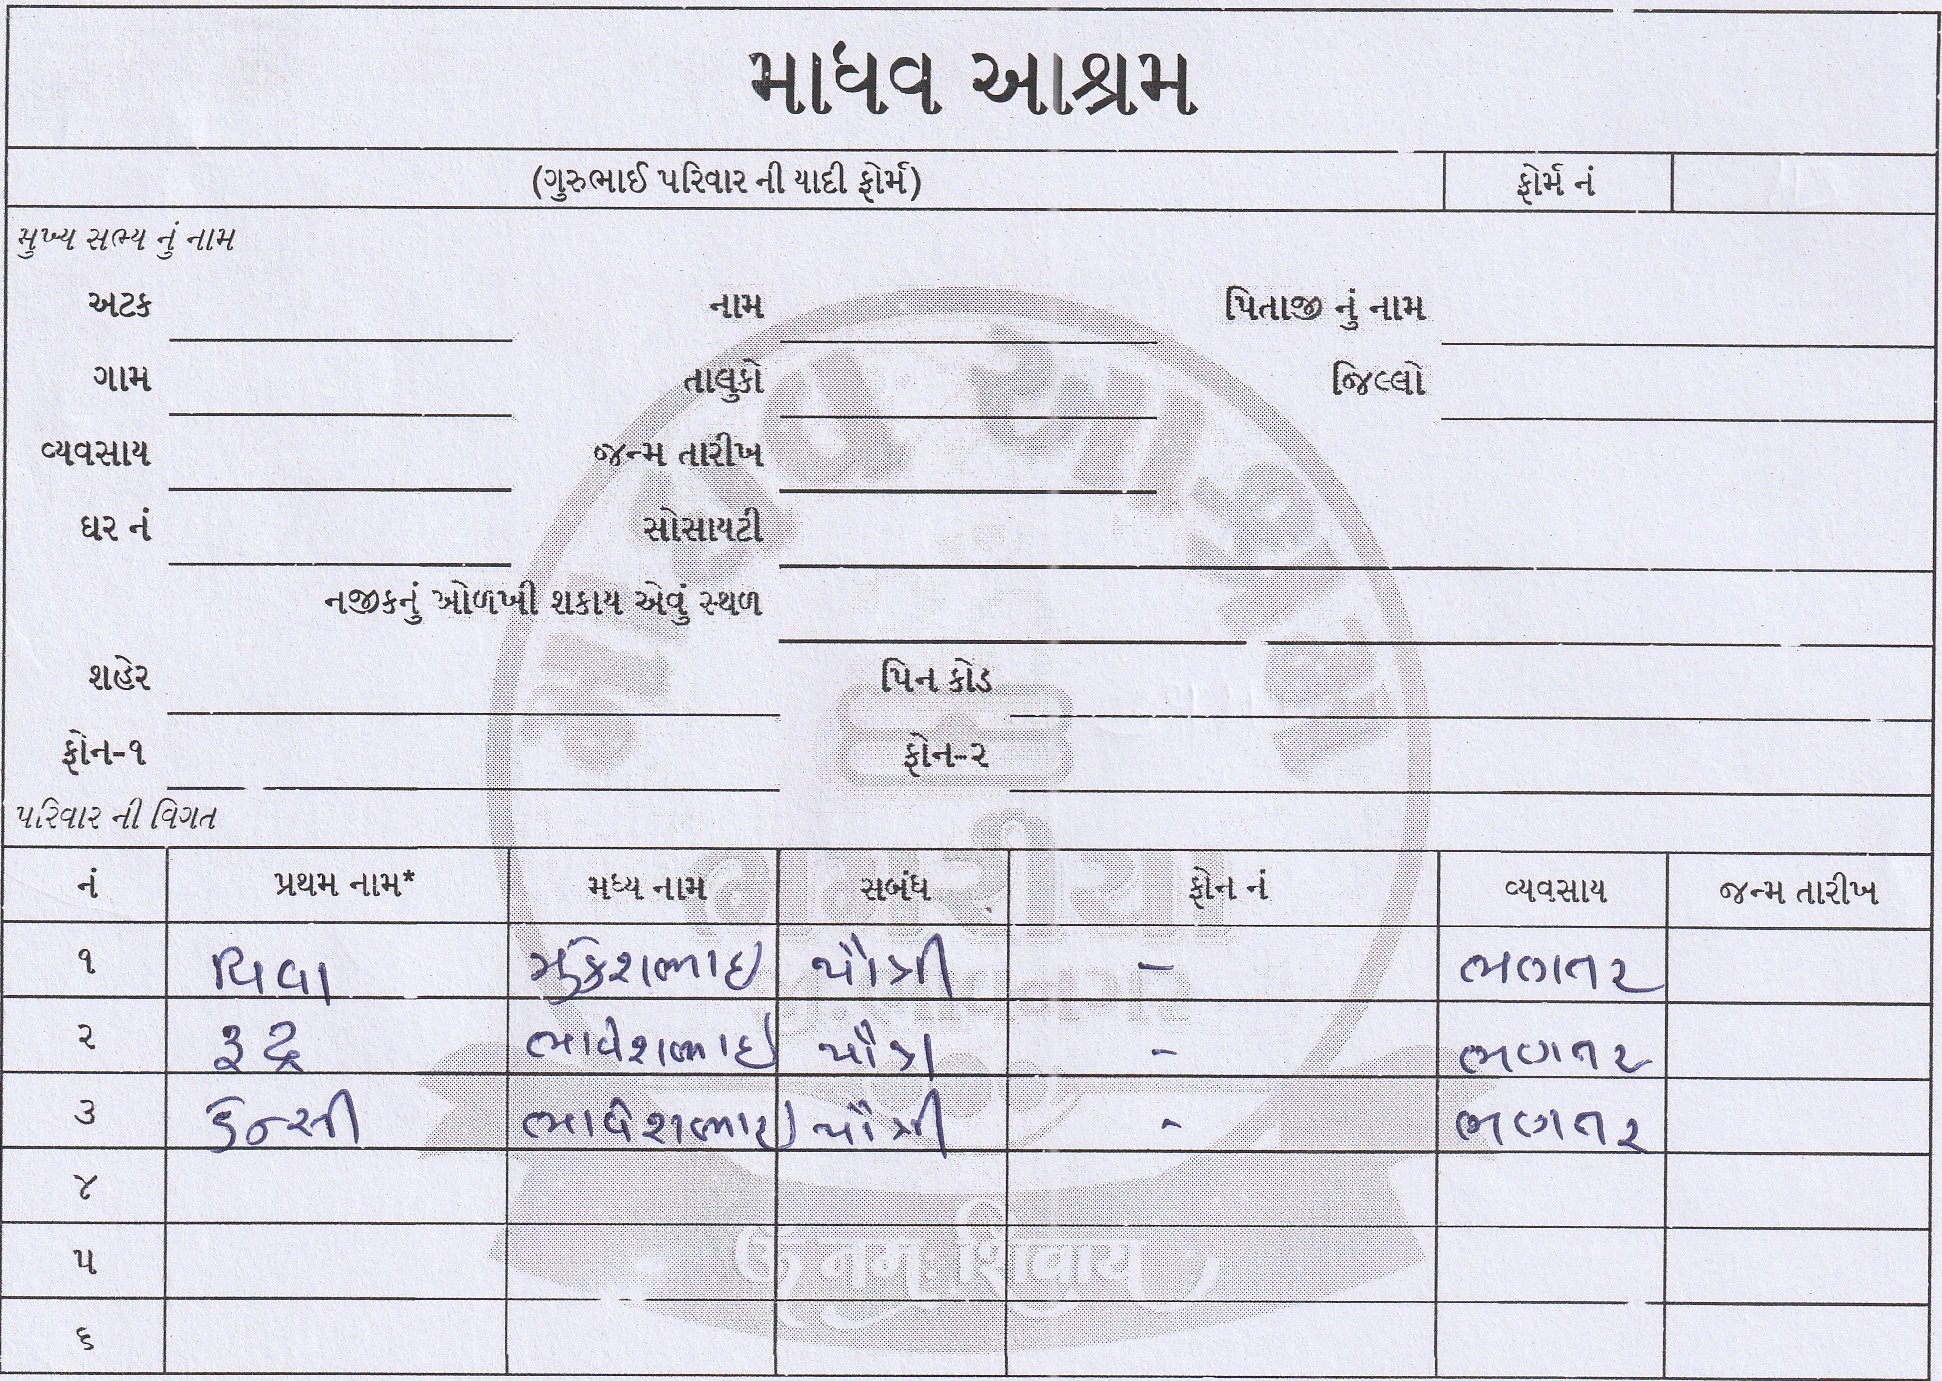 માધવ આશ્રમ
(ગુરુભાઈ પરિવાર ની યાદી ફોર્મ) ફોર્મ નં
મુખ્ય સભ્ય નું નામ
અટક નામ પિતાજી નું નામ
ગામ તાલુકો જિલ્લો
વ્યવસાય જન્મ તારીખ
ઘર નં સોસાયટી
નજીકનું ઓળખી શકાય એવું સ્થળ
શહેર પિન કોડ
ફોન-૧ ફોન-૨
પરિવાર ની વિગત
નં પ્રથમ નામ* મધ્ય નામ સબંધ ફોન નં વ્યવસાય જન્મ તારીખ
૧ મુકેશભાઇ પૌત્રી - ભણતર
૨ રૂદ્ર ભાવેશભાઇ પૌત્ર - ભણતર
૩ ભાવેશભાઇ પૌત્રી - ભણતર
૪
૫
૬
ॐ नमः शिवाय